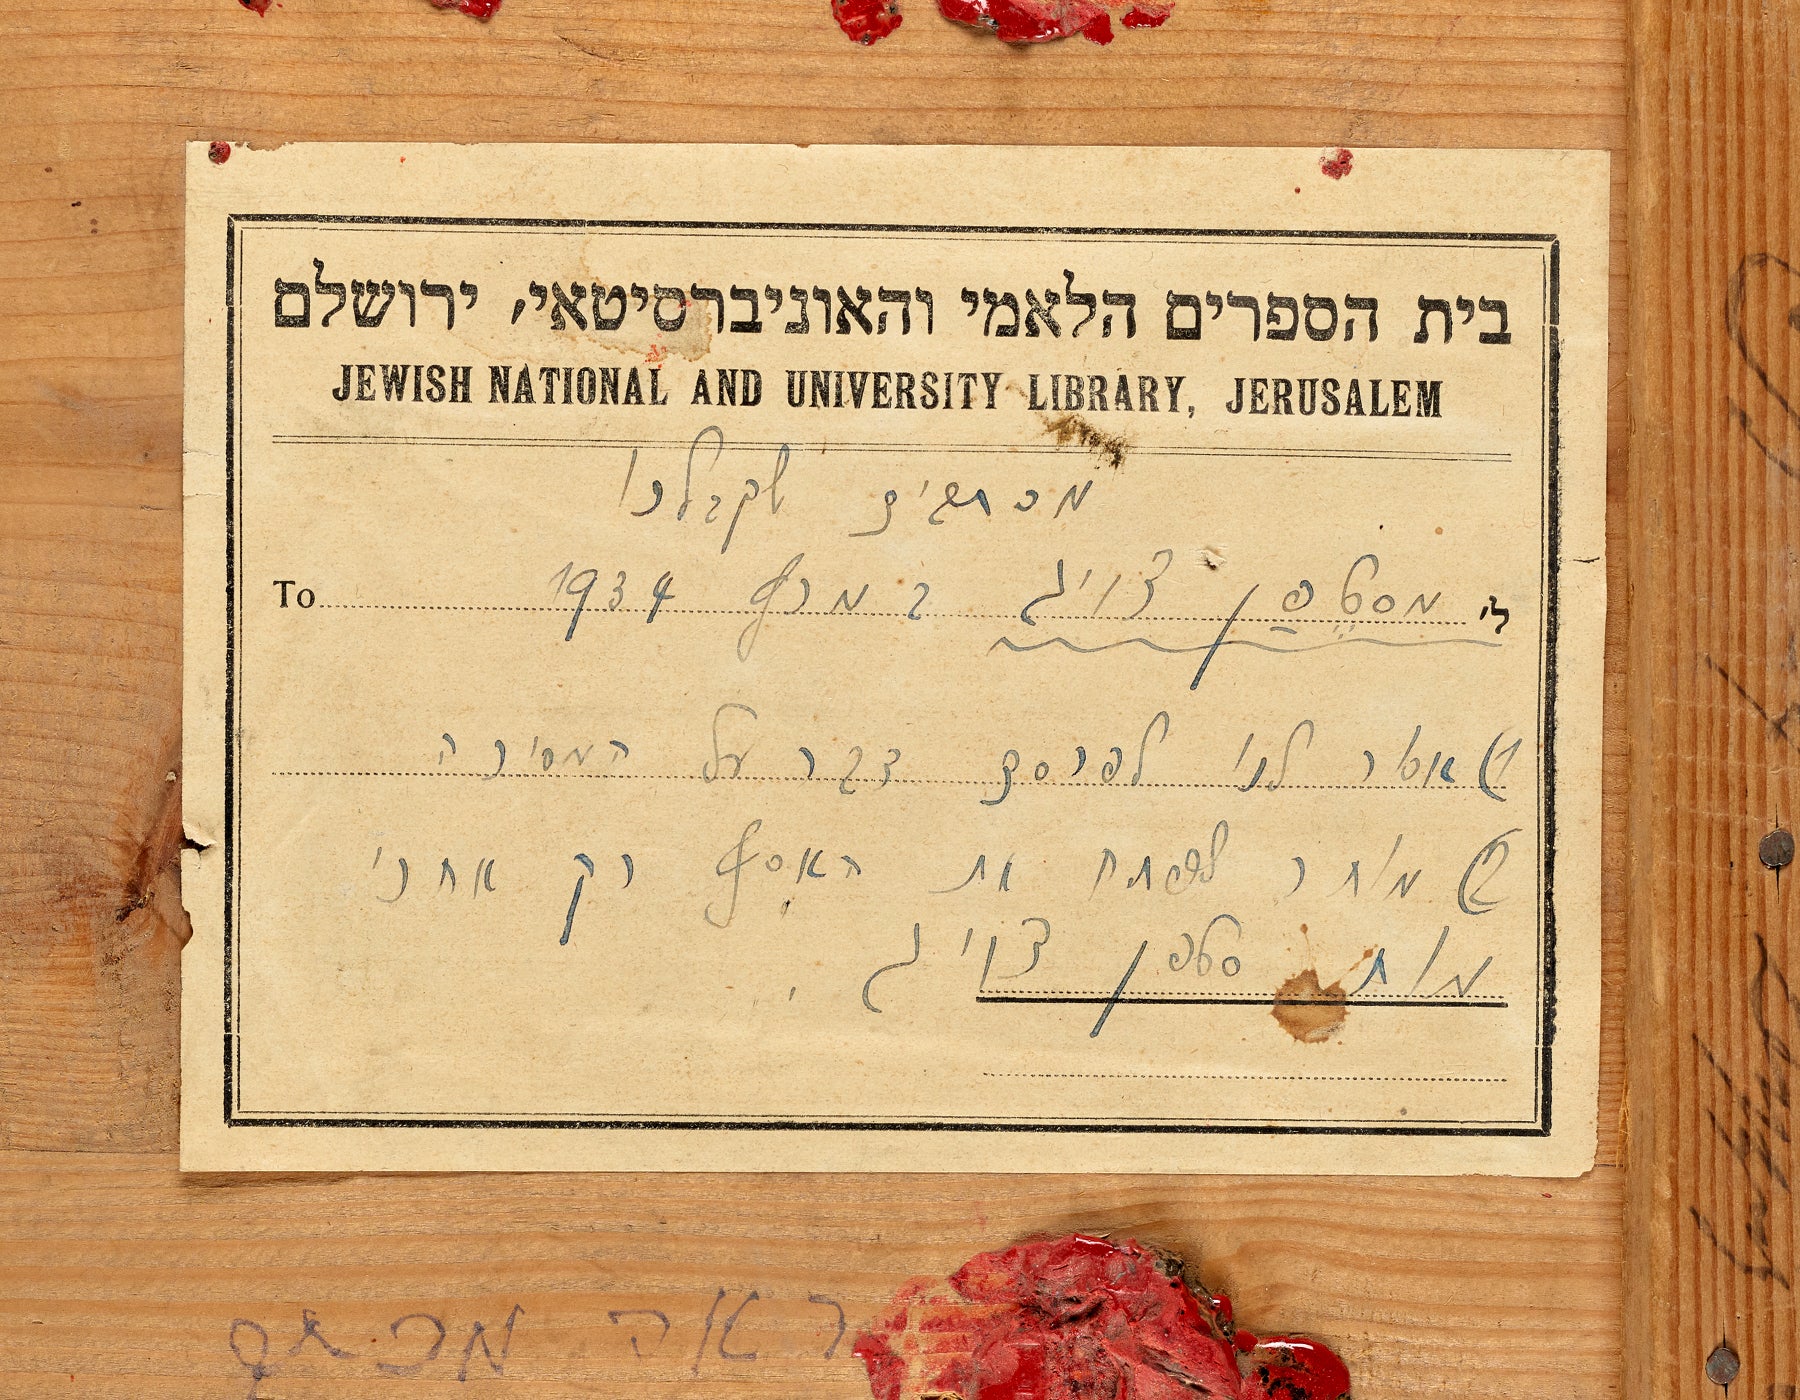 בית הספרים הלאמי והאוניברסיטאי, ירושלם
JEWISH NATIONAL AND UNIVERSITY LIBRARY, JERUSALEM
מכתבים שקבלנו
ל־ מסטפן צויג במרץ 1934 To
1) אסור לנו לפרסם דבר על המסירה
2) מותר לפתח את האסף רק אחרי
מות סטפן צויג.
ראה מכתב